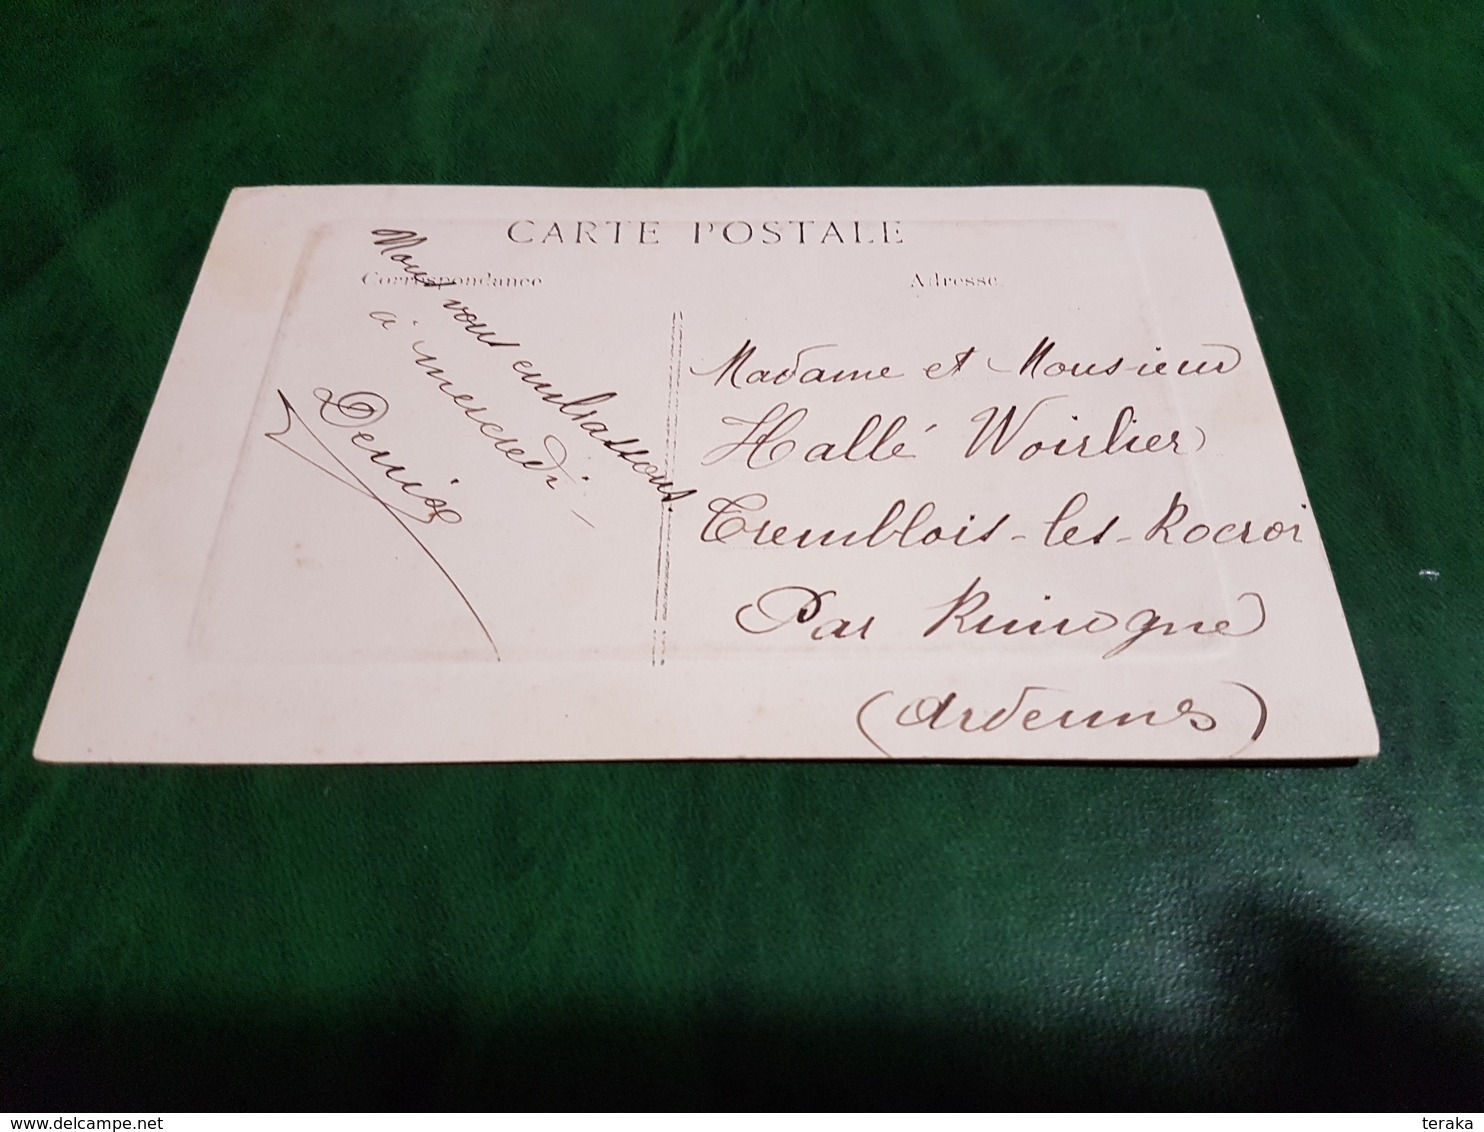 CARTE POSTALE
Correspondance
Adresse
Nous vous embrassons.
à mercredi –
Denise
Madame et Monsieur
Hallé Woirlier
Tremblois-les-Rocroi
Par Rimogne
(Ardennes)
www.delcampe.net
teraka